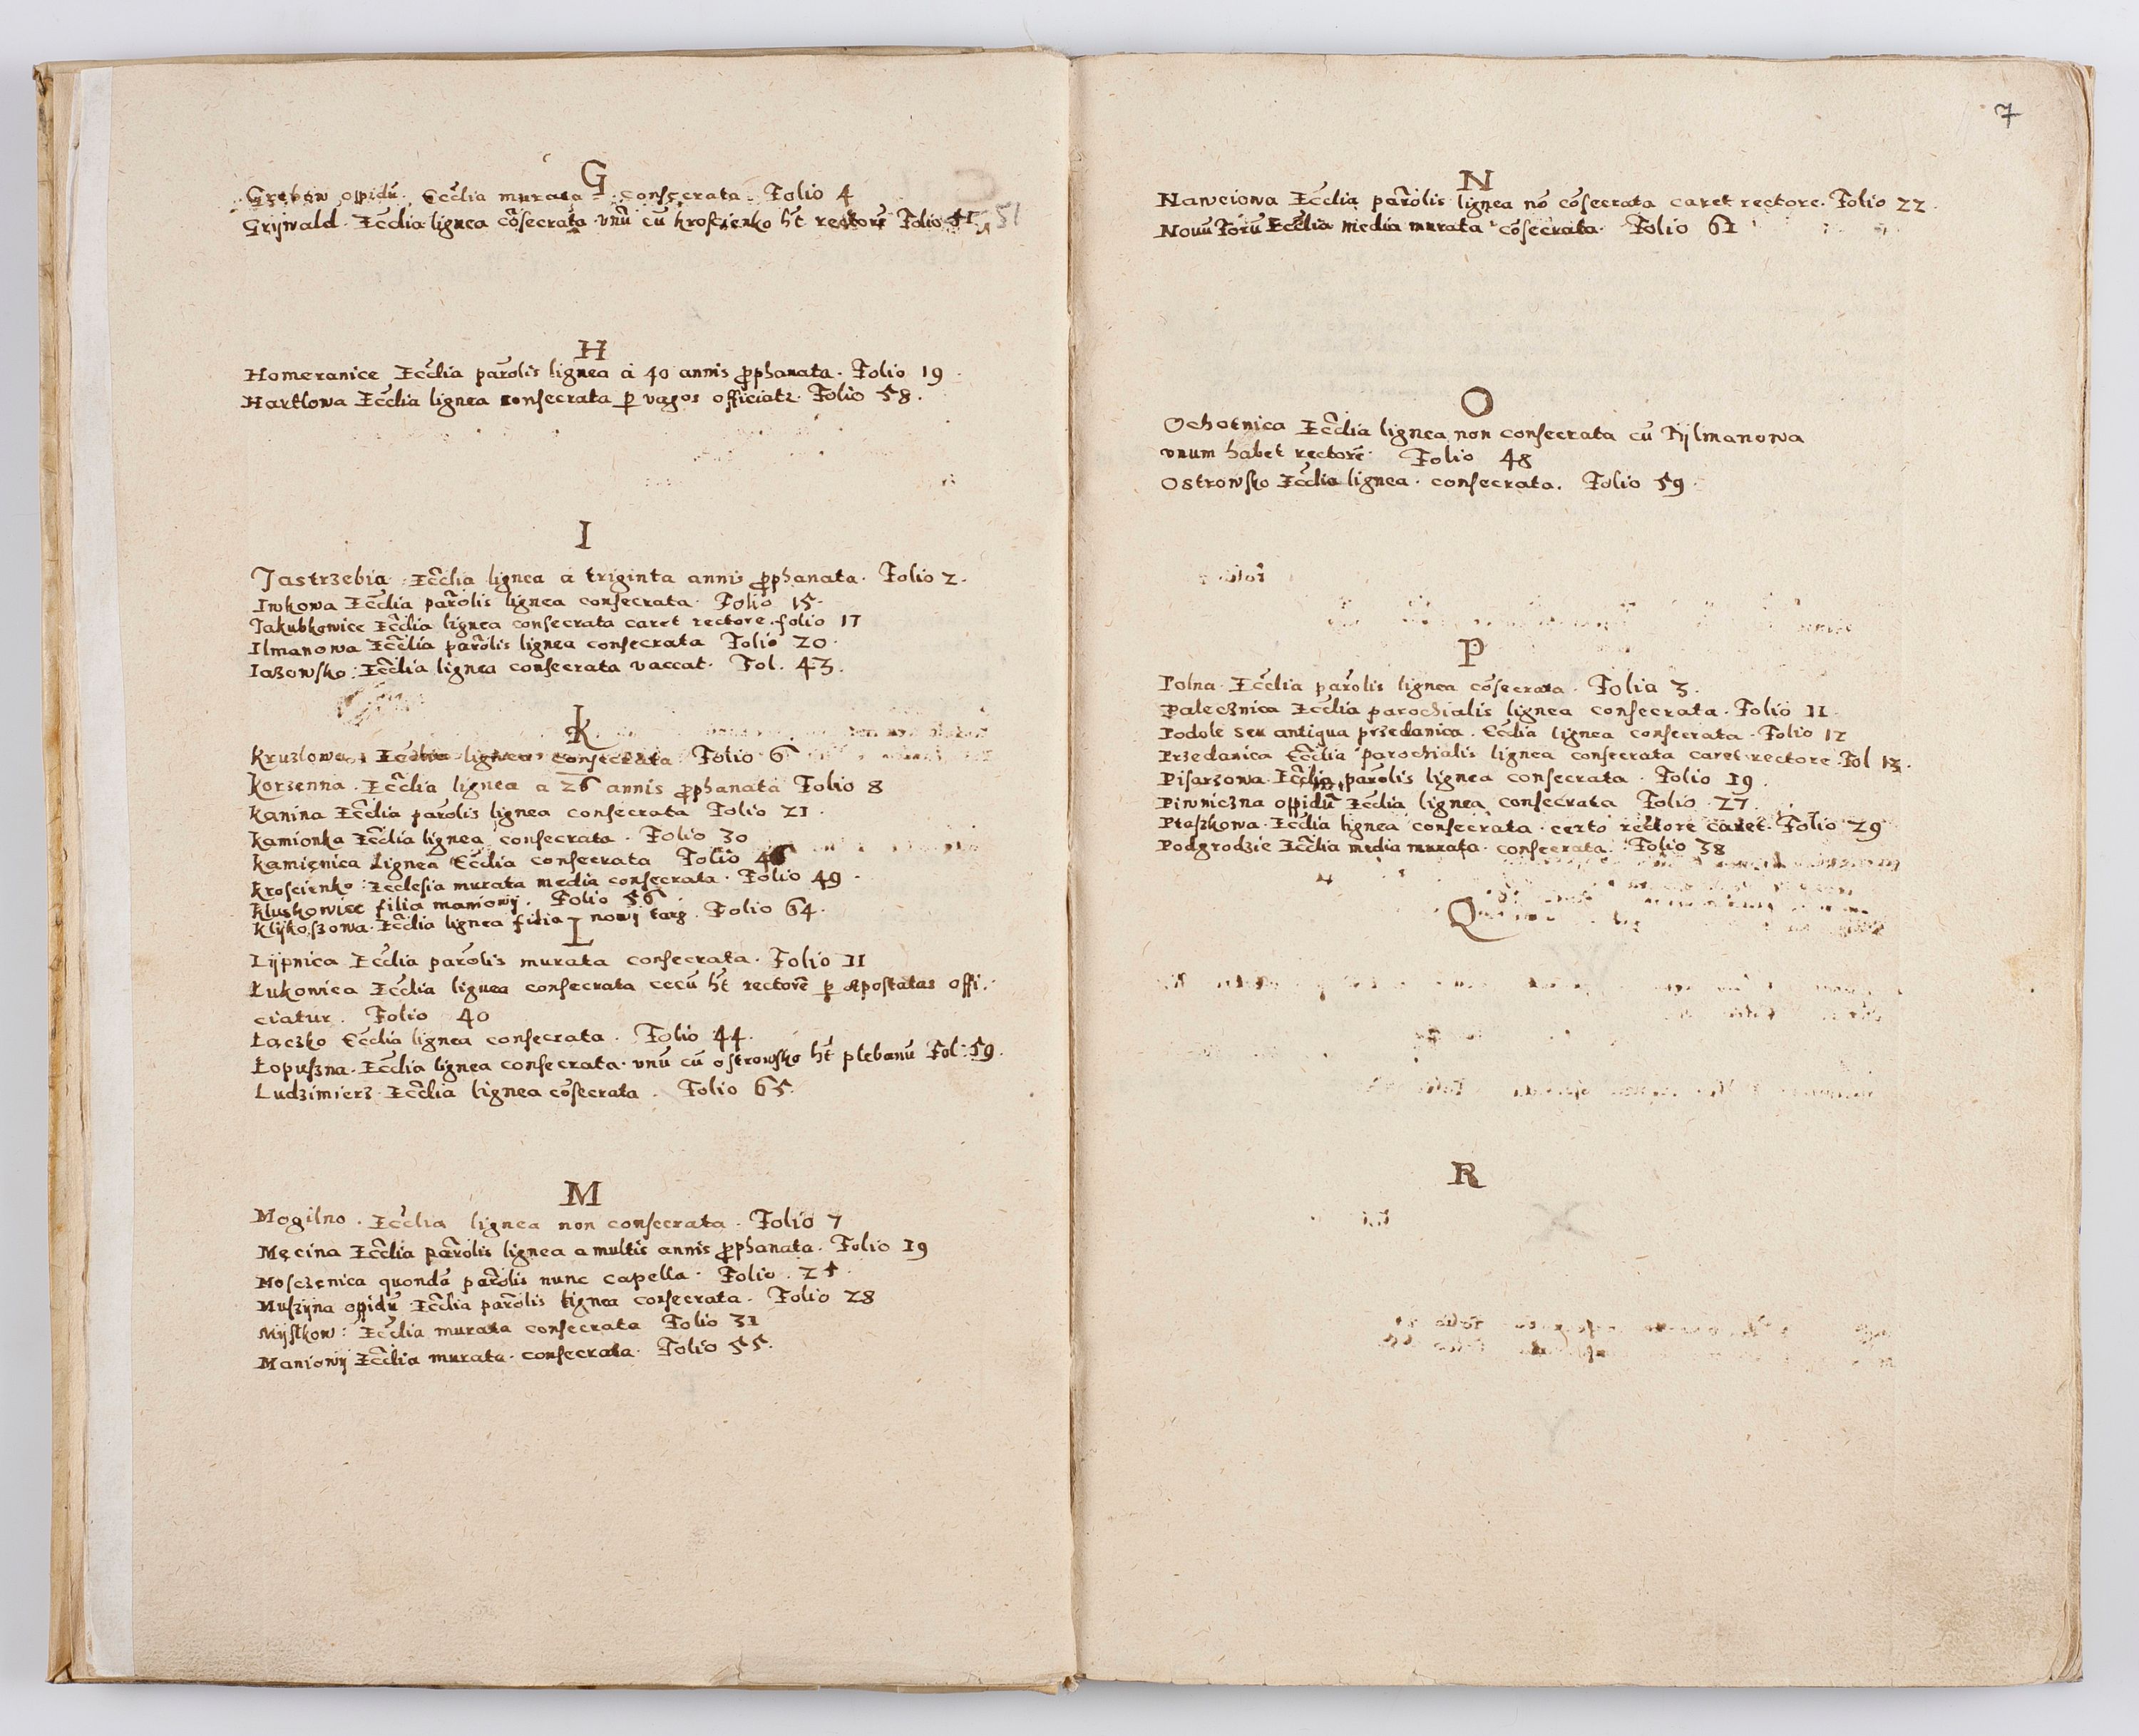 G
Grębow oppidū. Ecclia murata consecrata. Folio 4
Grijwald. Ecclia lignea cōsecrata vnū cū kroscienko ht̄ rectorē Folio 51 51
H
Homeranice Ecclia parōlis lignea á 40 annis ꝓphanata. Folio 19.
Hartlowa Ecclia lignea consecrata ꝑ vagos officiatr. Folio 58.
I
Jastrzebia Ecclia lignea a triginta annis ꝓphanata. Folio 2.
Iwkowa Ecclia parōlis lignea consecrata. Folio 15.
Jakubkowice Ecclia lignea consecrata caret rectore. folio 17
Ilmanowa Ecclia parōlis lignea consecrata Folio 20.
Iazowsko. Ecclia lignea consecrata vaccat. Fol. 43.
K
kruzlowa. Ecclia lignea consecrata Folio 6
korzenna. Ecclia lignea a 26 annis ꝓphanata Folio 8
kanina Ecclia parōlis lignea consecrata Folio 21.
kamionka Ecclia lignea consecrata. Folio 30
kamięnica Lignea Ecclia consecrata Folio
kroscienko Ecclesia murata media consecrata. Folio 49.
kluskowice filia maniowij. Folio 56.
klijkoszowa. Ecclia lignea filia nowij targ. Folio 64.
L
Lijpnica Ecclia parōlis murata consecrata. Folio 11
Łukowica Ecclia lignea consecrata cecū ht̄ rectorē ꝑ Apostatas offi.
ciatur. Folio 40
Łączko Ecclia lignea consecrata. Folio 44.
Łopuszna. Ecclia lignea consecrata. vnū cū ostrowsko ht̄ plebanū Fol. 59.
Ludzimierz. Ecclia lignea cōsecrata. Folio 65.
M
Mogilno. Ecclia lignea non consecrata. Folio 7
Męcina Ecclia parōlis lignea a multis annis ꝓphanata. Folio 19
Mosczenica quondā parōlis nunc capella. Folio.
Muszijna oppidū Ecclia parōlis lignea consecrata. Folio 28
Mijstkow: Ecclia murata consecrata Folio 31
Maniowij Ecclia murata. consecrata. Folio 55.
7
N
Nawciowa Ecclia parōlis lignea nō cōsecrata caret rectore. Folio 22.
Nouū Forū Ecclia media murata cōsecrata. Folio 61
O
Ochotnica Ecclia lignea non consecrata cū Tijlmanowa
vnum habet rectorē. Folio 48
Ostrowsko Ecclia lignea. consecrata. Folio 59.
P
Polna. Ecclia parōlis lignea cōsecrata. Folia 3.
Palecznica Ecclia parochialis lignea consecrata. Folio 11.
Podole seu antiqua przedanica. Ecclia lignea consecrata. Folio 12
Przedanica Ecclia parochialis lignea consecrata caret rectore. Fol 13.
Pisarzowa. Ecclia parōlis lignea consecrata. Folio 19.
Piwniczna oppidū Ecclia lignea consecrata Folio 27.
Ptaszkowa. Ecclia lignea consecrata. certo rectore caret. Folio 29
Podgrodzie Ecclia media murata. consecrata. Folio 38
Q
R